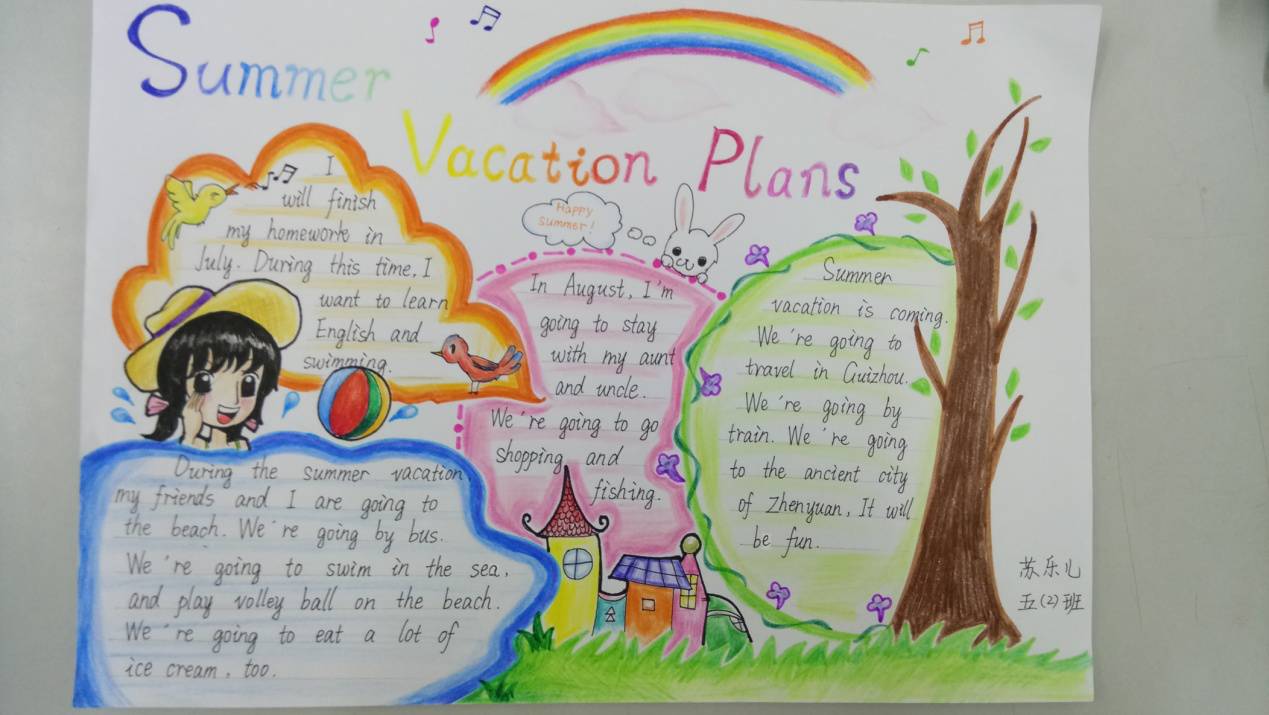 Summer
Vacation Plans
I
will finish
my homework in
July. During this time, I
want to learn
English and
swimming.
Happy
Summer!
In August, I'm
going to stay
with my aunt
and uncle.
We're going to go
shopping and
fishing.
Summer
vacation is coming.
We're going to
travel in Guizhou.
We're going by
train. We're going
to the ancient city
of Zhenyuan, It will
be fun.
During the summer vacation,
my friends and I are going to
the beach. We're going by bus.
We're going to swim in the sea,
and play volley ball on the beach.
We're going to eat a lot of
ice cream, too.
苏乐儿
五(2)班